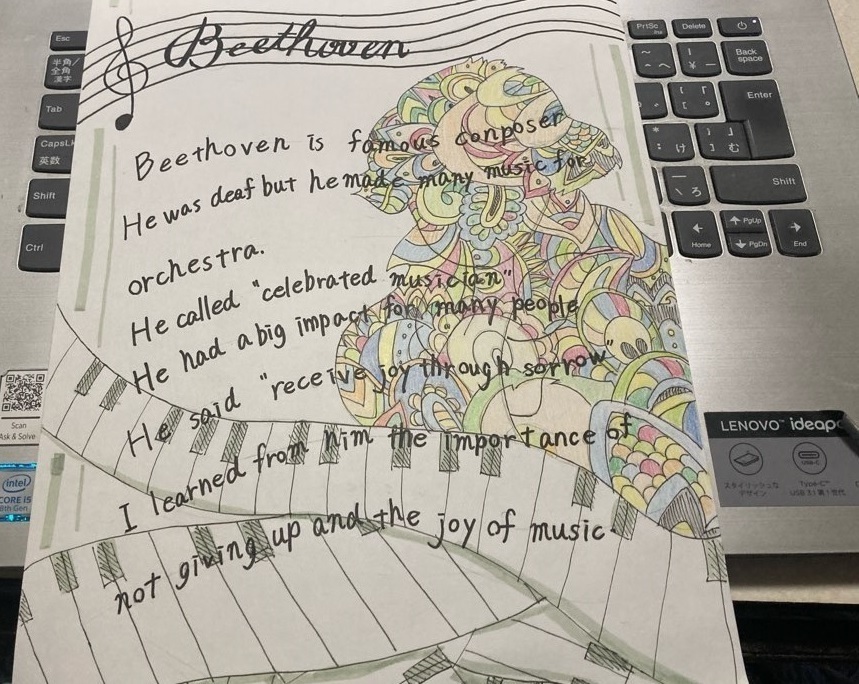 Beethoven
Beethoven is famous conposer
He was deaf but he made many music for
orchestra.
He called "celebrated musician"
He had a big impact for many people
He said "receive joy through sorrow"
I learned from him the importance of
not giving up and the joy of music.
Esc
半角/
全角
漢字
Tab
CapsL
英数
Shift
Ctrl
PrtSc
Delete
Back
space
Enter
Shift
PgUp
Home
PgDn
End
け
む
ろ
Scan
Ask & Solve
intel
CORE i5
8th Gen
LENOVO ideapa
スタイリッシュな
デザイン
USB-C
Type-C
USB 3.1 第1世代